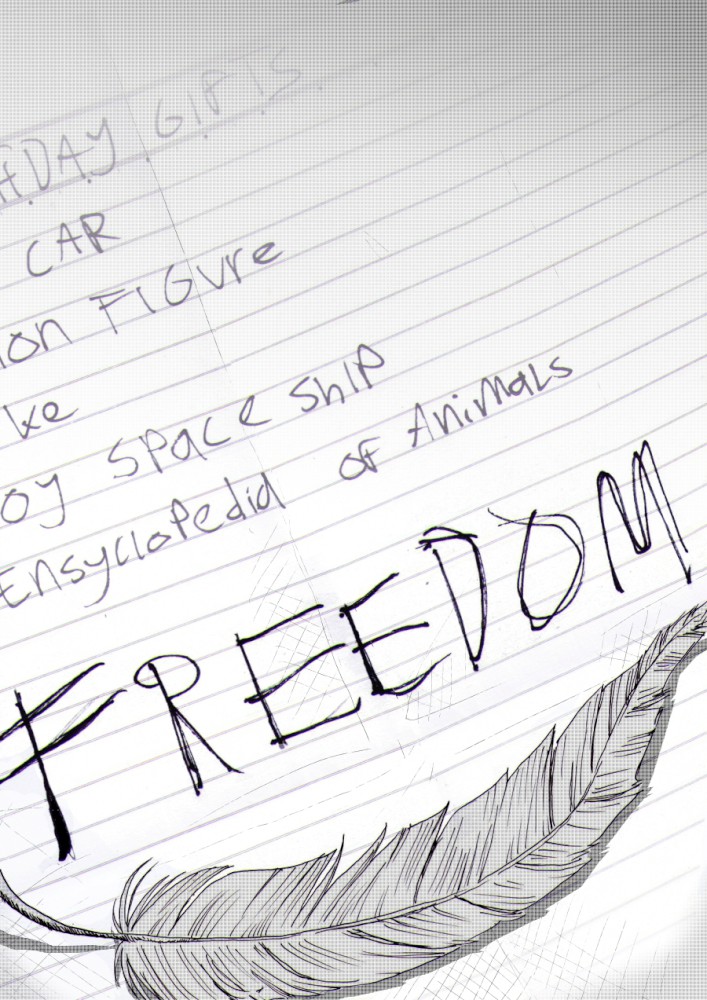 HDAY GIFTS
CAR
ion FIGUre
ke
oy SPace ShIP
EnsycloPedia of AnimaLs
FREEDOM